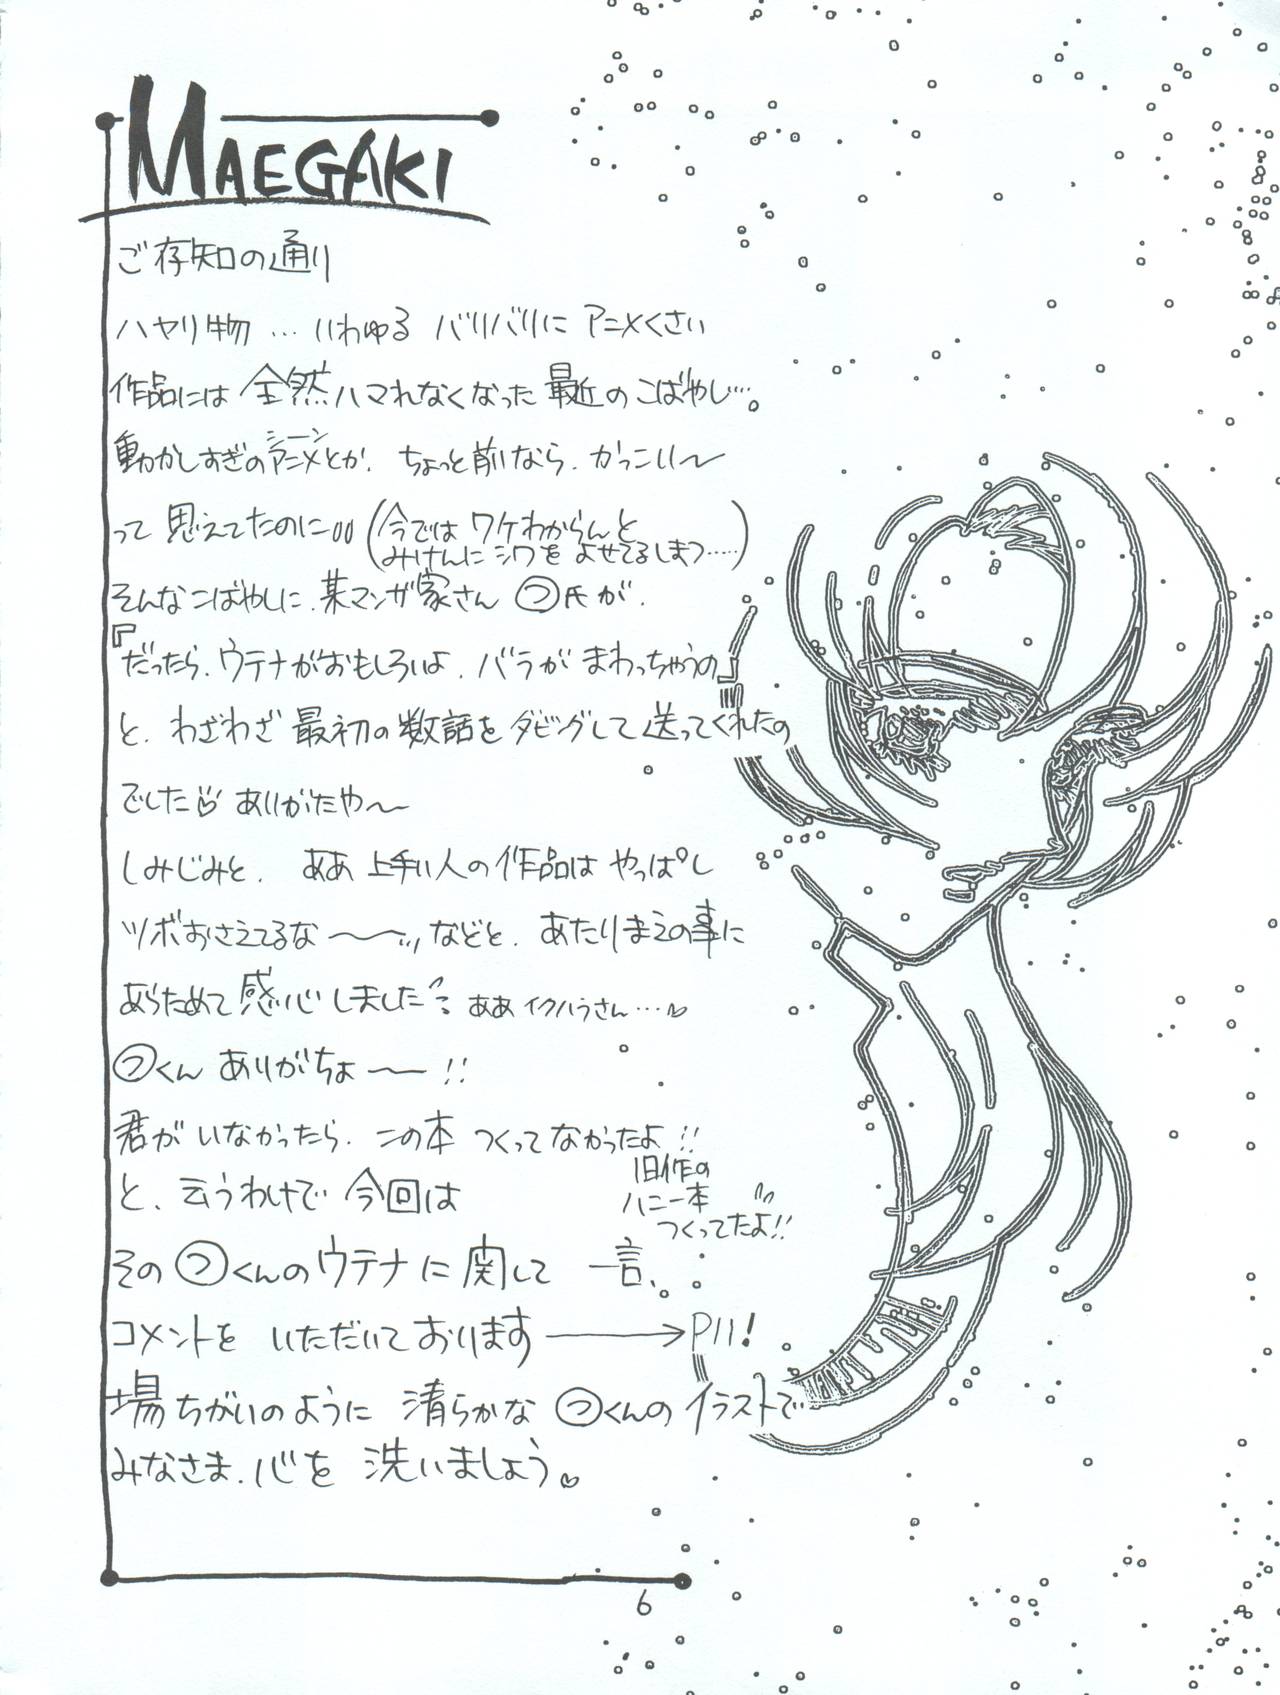 MAEGAKI
ご存知の通り
ハヤリ物…いわゆる バリバリに アニメくさい
作品には 全然ハマれなくなった 最近の こばやし…。
動かしすぎのアニメシーンとか、ちょっと前なら、かっこい〜
って 思えてたのに
(今では ワケわからんと
みけんに シワを よせてるしまつ……)
そんなこばやしに、某マンガ家さん つ氏が、
『だったら、ウテナがおもしろいよ、バラが まわっちゃうの』
と、わざわざ 最初の 数話を ダビングして 送ってくれたの
でした♡ ありがたや〜
しみじみと、 ああ 上手い人の 作品は やっぱし
ツボおさえてるな〜… などと、あたりまえの事に
あらためて 感心しました ああ イクハラさん…♡
つくん ありがちょ〜!!
君が いなかったら、この本 つくって なかったよ!!
旧作の
ハニー本
つくってたよ!!
と、云うわけで 今回は
その つくんのウテナに 関して 一言、
コメントを いただいて おります → P11!
場ちがいのように 清らかな つくんの イラストで
みなさま、心を 洗いましょう。♡
6